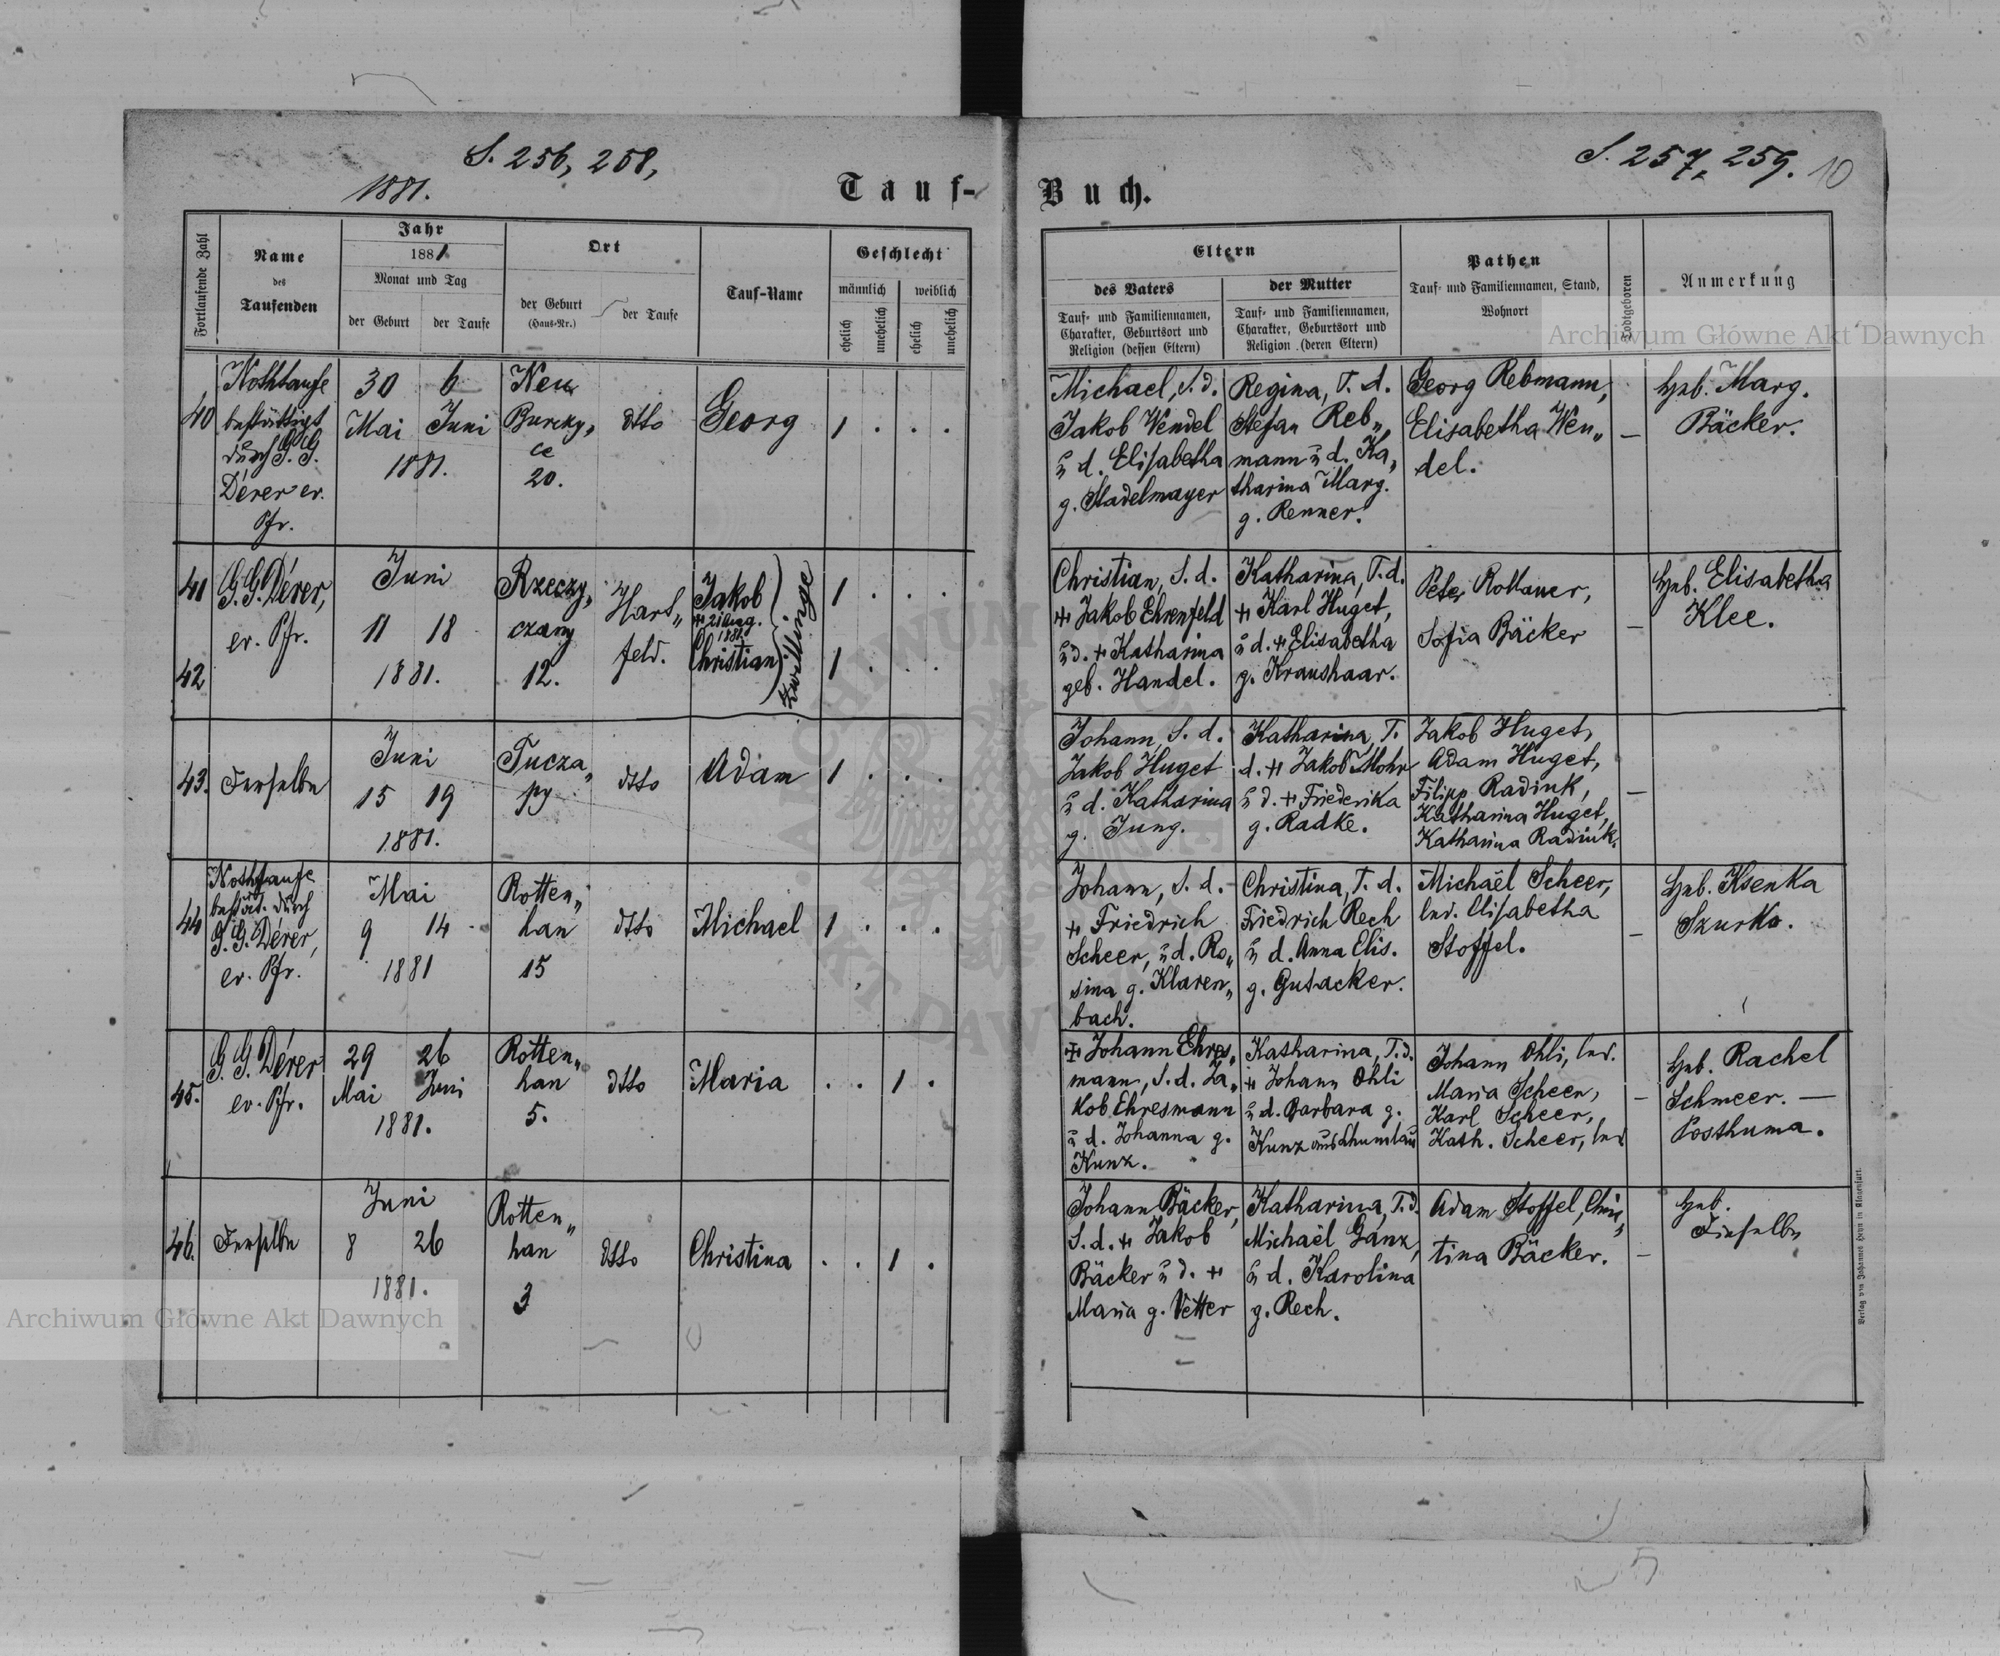 S. 256, 258,
1881.
Tauf-
Fortlaufende Zahl
Name
des
Taufenden
Jahr
1881
Monat und Tag
der Geburt
der Taufe
Ort
der Geburt
(Haus-Nr.)
der Taufe
Tauf-Name
Geschlecht
männlich
weiblich
ehelich
unehelich
ehelich
unehelich
40
Nothtaufe
bestättigt
durch G. G.
Dérer ev.
Pfr.
30 6
Mai Juni
1881.
Neu
Burczy„
ce
20.
dtto
Georg
1 . . .
41
42
G. G. Dérer,
ev. Pfr.
Juni
11 18
1881.
Rzeczy„
czany
12.
Hart„
feld.
Jakob
+ 21 Aug.
1881.
Christian
Zwillinge
1 . . .
1 . . .
43.
Derselbe
Juni
15 19
1881.
Tucza„
py
dtto
Adam
1 . . .
44
Nothtaufe
bestät. durch
G. G. Dérer,
ev. Pfr.
Mai
9 14
1881
Rotten„
han
15
dtto
Michael
1 . . .
45.
G. G. Dérer
ev. Pfr.
29 26
Mai Juni
1881.
Rotten„
han
5.
dtto
Maria
. . 1 .
46.
Derselbe
Juni
8 26
1881.
Rotten„
han
3
dtto
Christina
. . 1 .
S. 257, 259. 10
Buch.
Eltern
des Vaters
Tauf- und Familiennamen,
Charakter, Geburtsort und
Religion (dessen Eltern)
der Mutter
Tauf- und Familiennamen,
Charakter, Geburtsort und
Religion (deren Eltern)
Pathen
Tauf- und Familiennamen, Stand,
Wohnort
Todtgeboren
Anmerkung
Michael, S. d.
Jakob Wendel
u d. Elisabetha
g. Stadelmayer
Regina, T. d.
Stefan Reb„
mann u d. Ka„
tharina Marg.
g. Renner.
Georg Rebmann,
Elisabetha Wen„
del.
—
Heb. Marg.
Bäcker.
Christian, S. d.
+ Jakob Ehrenfeld
u d. + Katharina
geb. Handel.
Katharina, T. d.
+ Karl Huget,
u d. + Elisabetha
g. Kraushaar.
Peter Rottauer,
Sofia Bäcker
—
Heb. Elisabetha
Klee.
Johann, S. d.
Jakob Huget
u d. Katharina
g. Jung.
Katharina, T.
d. + Jakob Mohr
u d. + Friederika
g. Radke.
Jakob Huget,
Adam Huget,
Filipp Radink,
Katharina Huget,
Katharina Radink.
—
Johann, S. d.
+ Friedrich
Scheer, u d. Ro„
sina g. Klaren„
bach.
Christina, T. d.
Friedrich Rech
u d. Anna Elis.
g. Gutacker.
Michaël Scheer,
led. Elisabetha
Stoffel.
—
Heb. Ksenka
Szurko.
+ Johann Ehres„
mann, S. d. Ja„
kob Ehresmann
u d. Johanna g.
Kunz.
Katharina, T. d.
+ Johann Ohli
u d. Barbara g.
Kunz aus
Johann Ohli, led.
Maria Scheer,
Karl Scheer,
Kath. Scheer, led
—
Heb. Rachel
Schmeer. —
Posthuma.
Johann Bäcker,
S. d. + Jakob
Bäcker u d. +
Maria g. Vetter
Katharina, T. d.
Michaël Ganz,
u d. Karolina
g. Rech.
Adam Stoffel, Chris„
tina Bäcker.
—
Heb.
Dieselbe
Verlag von Johannes Heyn in Klagenfurt.
Archiwum Główne Akt Dawnych
Archiwum Główne Akt Dawnych